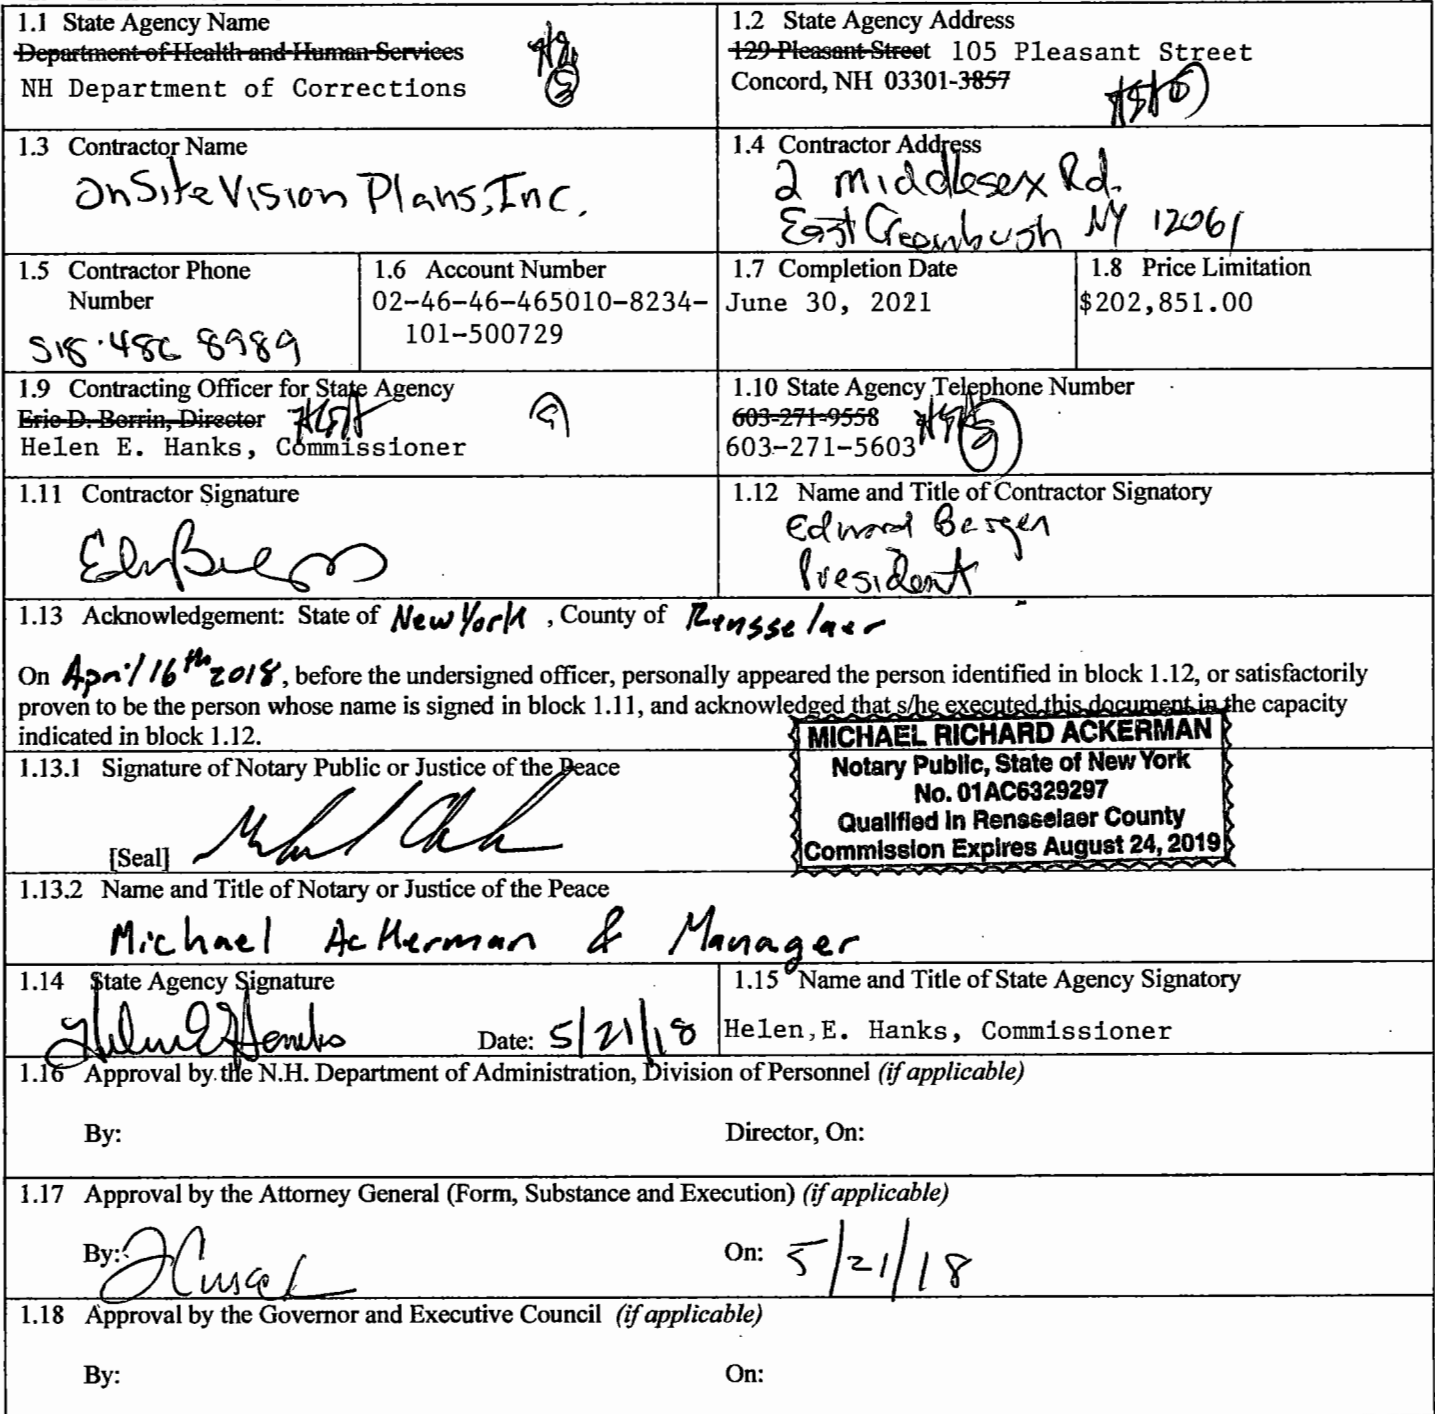 1.1 State Agency Name
Department of Health and Human Services
NH Department of Corrections
1.2 State Agency Address
129 Pleasant Street 105 Pleasant Street
Concord, NH 03301-3857
1.3 Contractor Name
OnSite Vision Plans, Inc.
1.4 Contractor Address
2 Middlesex Rd.
East Greenbush NY 12061
1.5 Contractor Phone
Number
518·486 8989
1.6 Account Number
02-46-46-465010-8234-
101-500729
1.7 Completion Date
June 30, 2021
1.8 Price Limitation
$202,851.00
1.9 Contracting Officer for State Agency
Eric D. Borrin, Director
Helen E. Hanks, Commissioner
1.10 State Agency Telephone Number
603-271-9558
603-271-5603
1.11 Contractor Signature
1.12 Name and Title of Contractor Signatory
Edward Bergen
President
1.13 Acknowledgement: State of New York , County of Rensselaer
On April 16th 2018, before the undersigned officer, personally appeared the person identified in block 1.12, or satisfactorily
proven to be the person whose name is signed in block 1.11, and acknowledged that s/he executed this document in the capacity
indicated in block 1.12.
MICHAEL RICHARD ACKERMAN
Notary Public, State of New York
No. 01AC6329297
Qualified in Rensselaer County
Commission Expires August 24, 2019
1.13.1 Signature of Notary Public or Justice of the Peace
[Seal]
1.13.2 Name and Title of Notary or Justice of the Peace
Michael Ackerman & Manager
1.14 State Agency Signature
Date: 5/21/18
1.15 Name and Title of State Agency Signatory
Helen,E. Hanks, Commissioner
1.16 Approval by the N.H. Department of Administration, Division of Personnel (if applicable)
By:
Director, On:
1.17 Approval by the Attorney General (Form, Substance and Execution) (if applicable)
By:
On: 5/21/18
1.18 Approval by the Governor and Executive Council (if applicable)
By:
On: